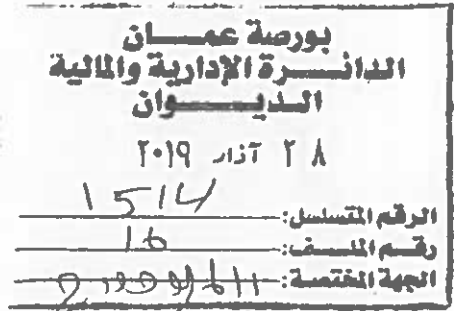 بورصة عمـــان
الدائـــرة الإدارية والمالية
الـديـــوان
٢٨ آذار ٢٠١٩
الرقم المتسلسل: 1514
رقـم الملـــف: 16
الجهة المختصة: